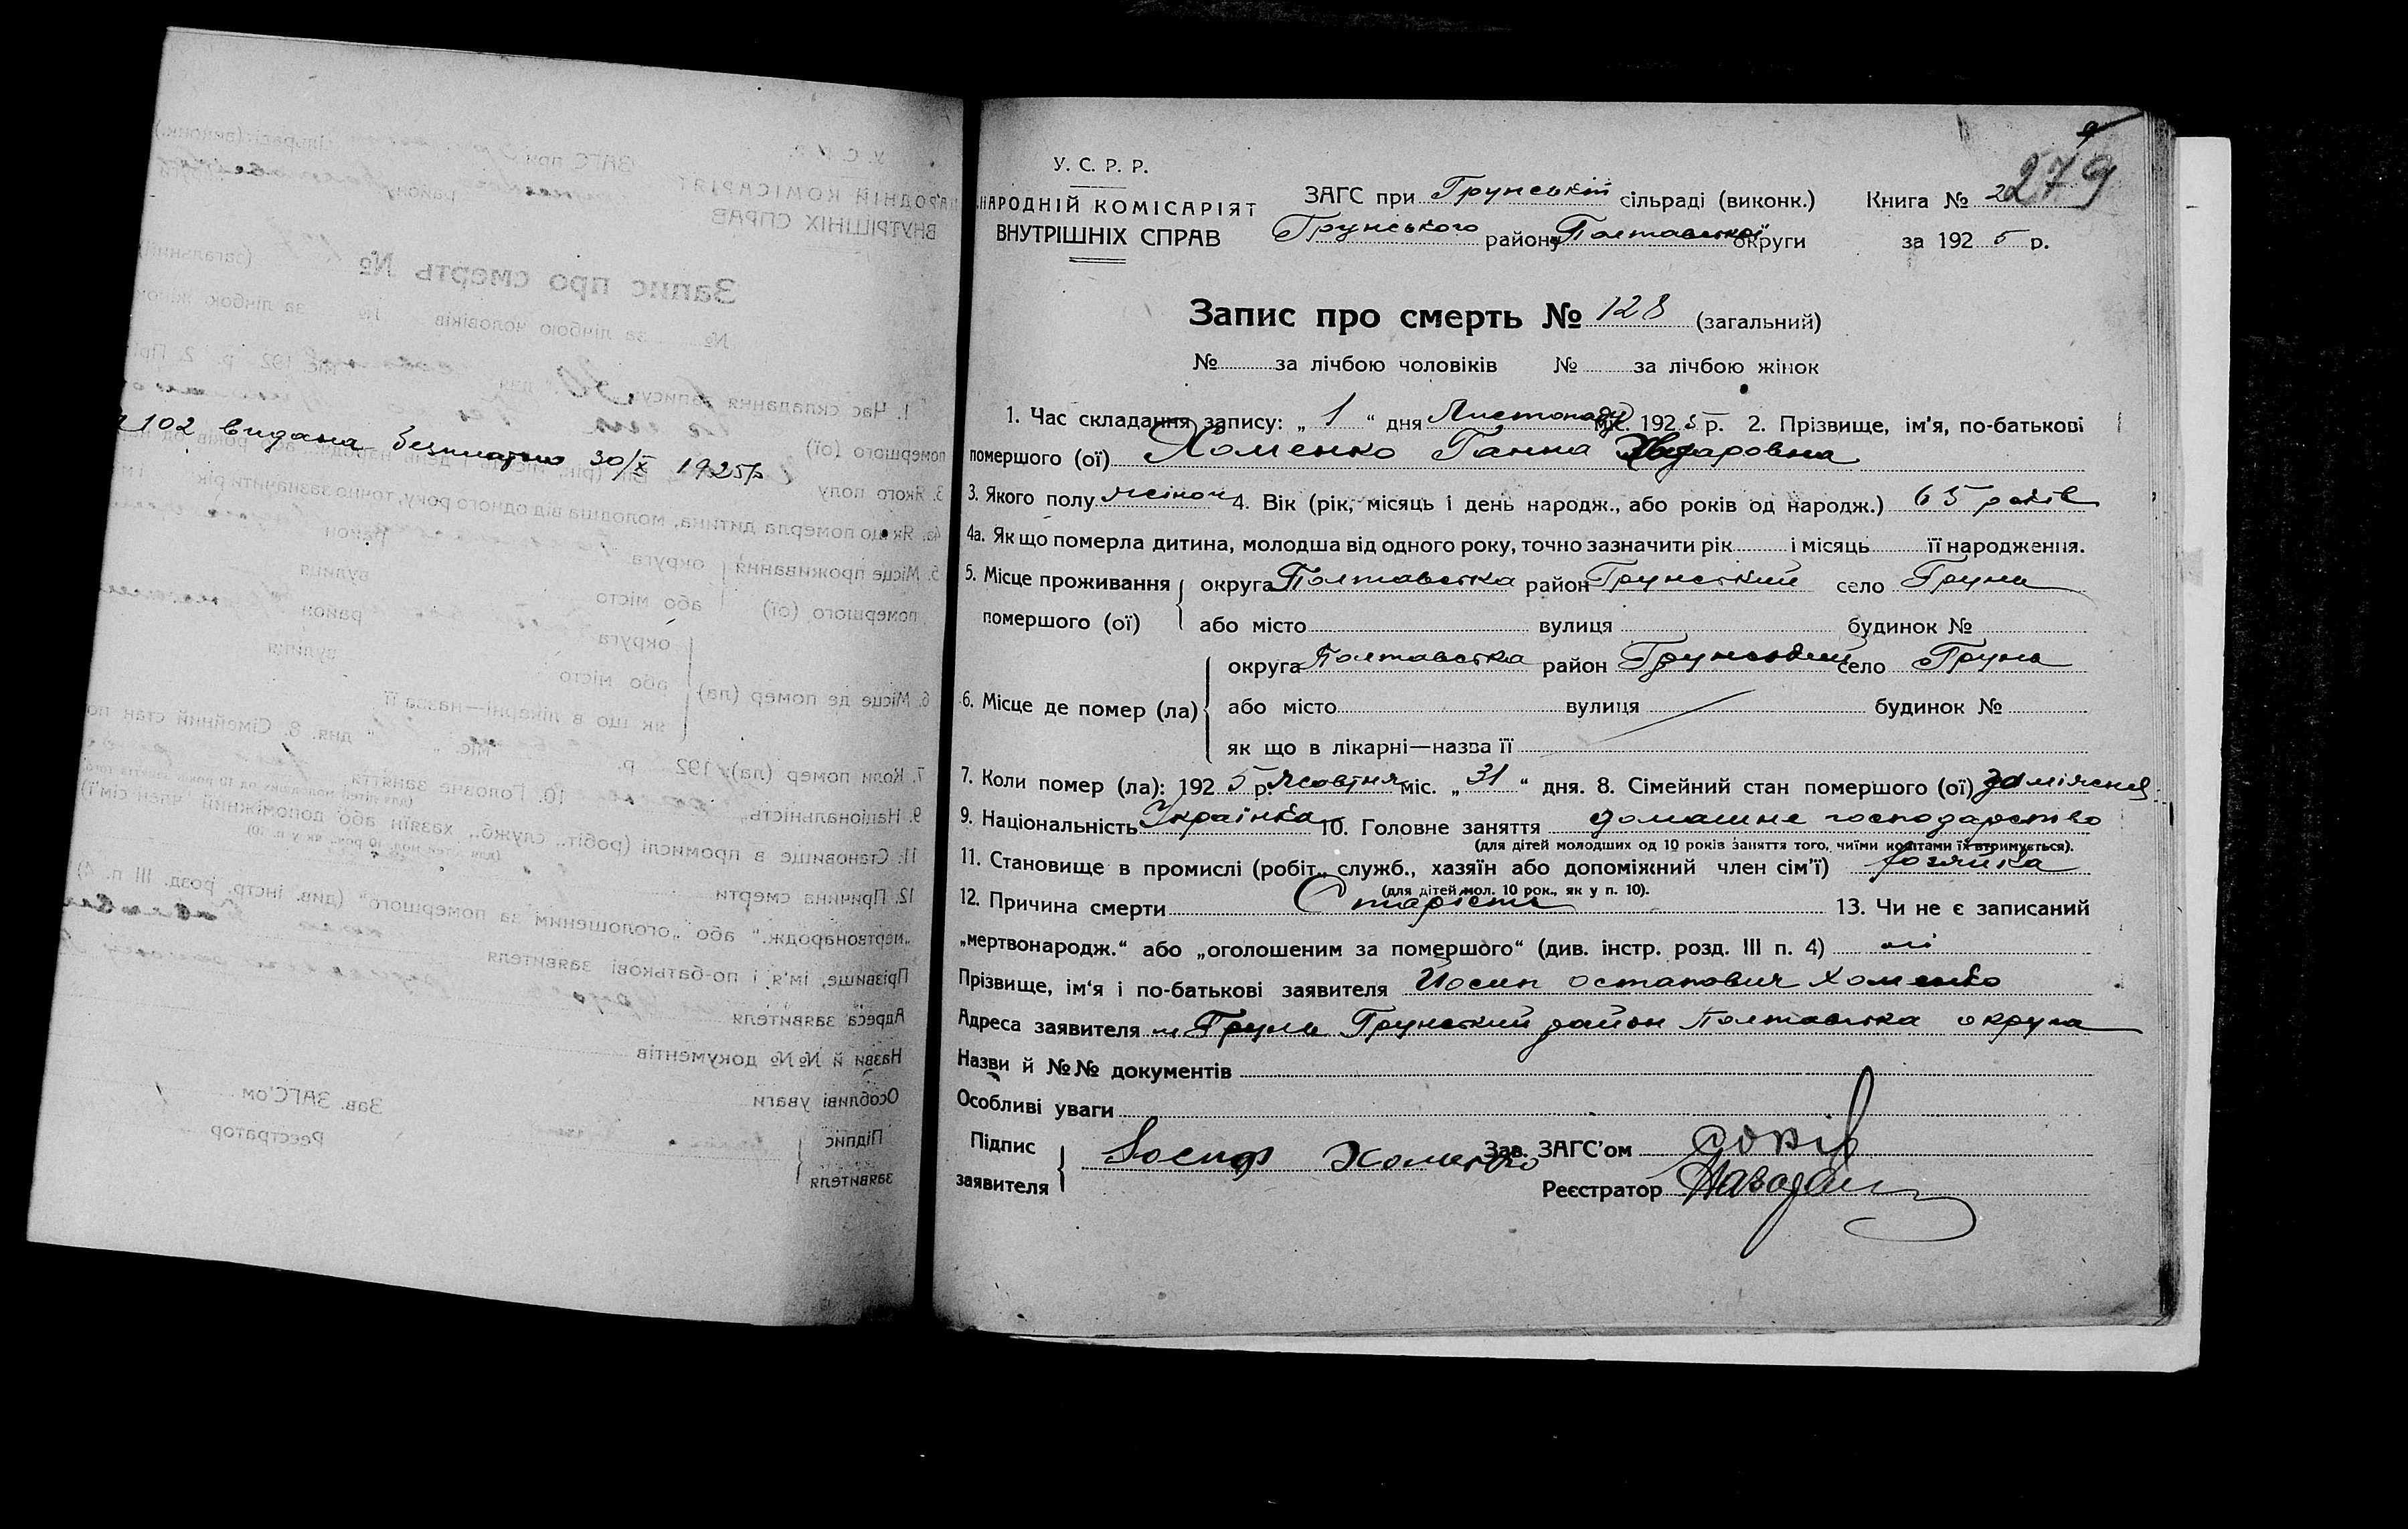 102 видана безплатно 30/X 1925 р
279
У. С. Р. Р.
НАРОДНІЙ КОМІСАРІЯТ
ВНУТРІШНІХ СПРАВ
ЗАГС при Грунській сільраді (виконк.) Книга № 2
Грунського району Полтавської округи за 1925 р.
Запис про смерть № 128 (загальний)
№ за лічбою чоловіків № за лічбою жінок
1. Час складання запису: „ 1 “ дня Листопаду міс. 1925 р. 2. Прізвище, ім’я, по-батькові
помершого (ої) Хоменко Ганна
3. Якого полу жіноч 4. Вік (рік, місяць і день народж., або років од народж.) 65 років
4а. Як що померла дитина, молодша від одного року, точно зазначити рік і місяць її народження.
5. Місце проживання округа Полтавська район Грунський село Грунь
помершого (ої) або місто вулиця будинок №
округа Полтавська район Грунський село Грунь
6. Місце де помер (ла) або місто вулиця будинок №
як що в лікарні—назва її
7. Коли помер (ла): 1925 р. Жовтня міс. „ 31 “ дня. 8. Сімейний стан помершого (ої) заміжня
9. Національність Українка 10. Головне заняття домашнє господарство
(для дітей молодших од 10 років заняття того, чиїми коштами їх втримується).
11. Становище в промислі (робіт., служб., хазяїн або допоміжний член сім’ї) хозяйка
(для дітей мол. 10 рок., як у п. 10).
12. Причина смерти Старість 13. Чи не є записаний
„мертвонародж.“ або „оголошеним за помершого“ (див. інстр. розд. III п. 4) ні
Прізвище, ім‘я і по-батькові заявителя Йосип Остапович Хоменко
Адреса заявителя м Грунь Грунський район Полтавська округа
Назви й №№ документів
Особливі уваги
Підпис
заявителя
Йосип Хоменко
Зав. ЗАГС’ом
Реєстратор